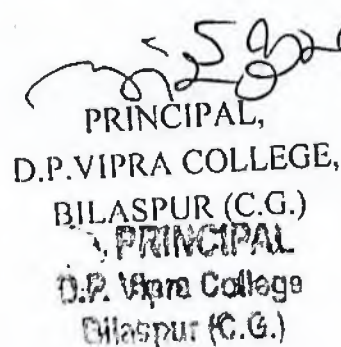 PRINCIPAL,
D.P.VIPRA COLLEGE,
BILASPUR (C.G.)
PRINCIPAL
D.P. Vipra College
Bilaspur (C.G.)